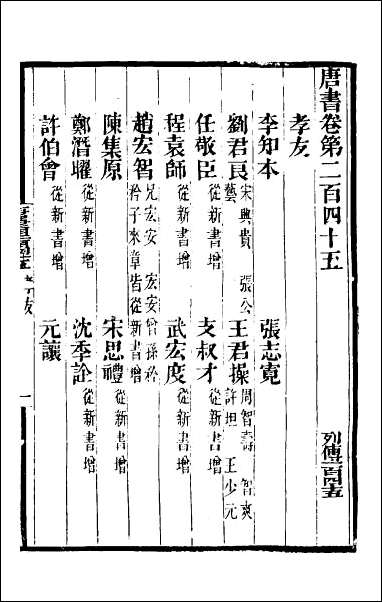 唐書卷第二百四十五
列傳一百四十五
孝友
李知本
張志寬
劉君良 宋興貴 張公藝
王君操 周智壽 智爽 許坦 王少元
任敬臣 從新書增
支叔才 從新書增
程袁師 從新書增
武宏度 從新書增
趙宏智 兄宏安 宏安曾孫矜 矜子來章皆從新書增
陳集原
宋思禮 從新書增
鄭潛曜 從新書增
沈季詮 從新書增
許伯會 從新書增
元讓
一